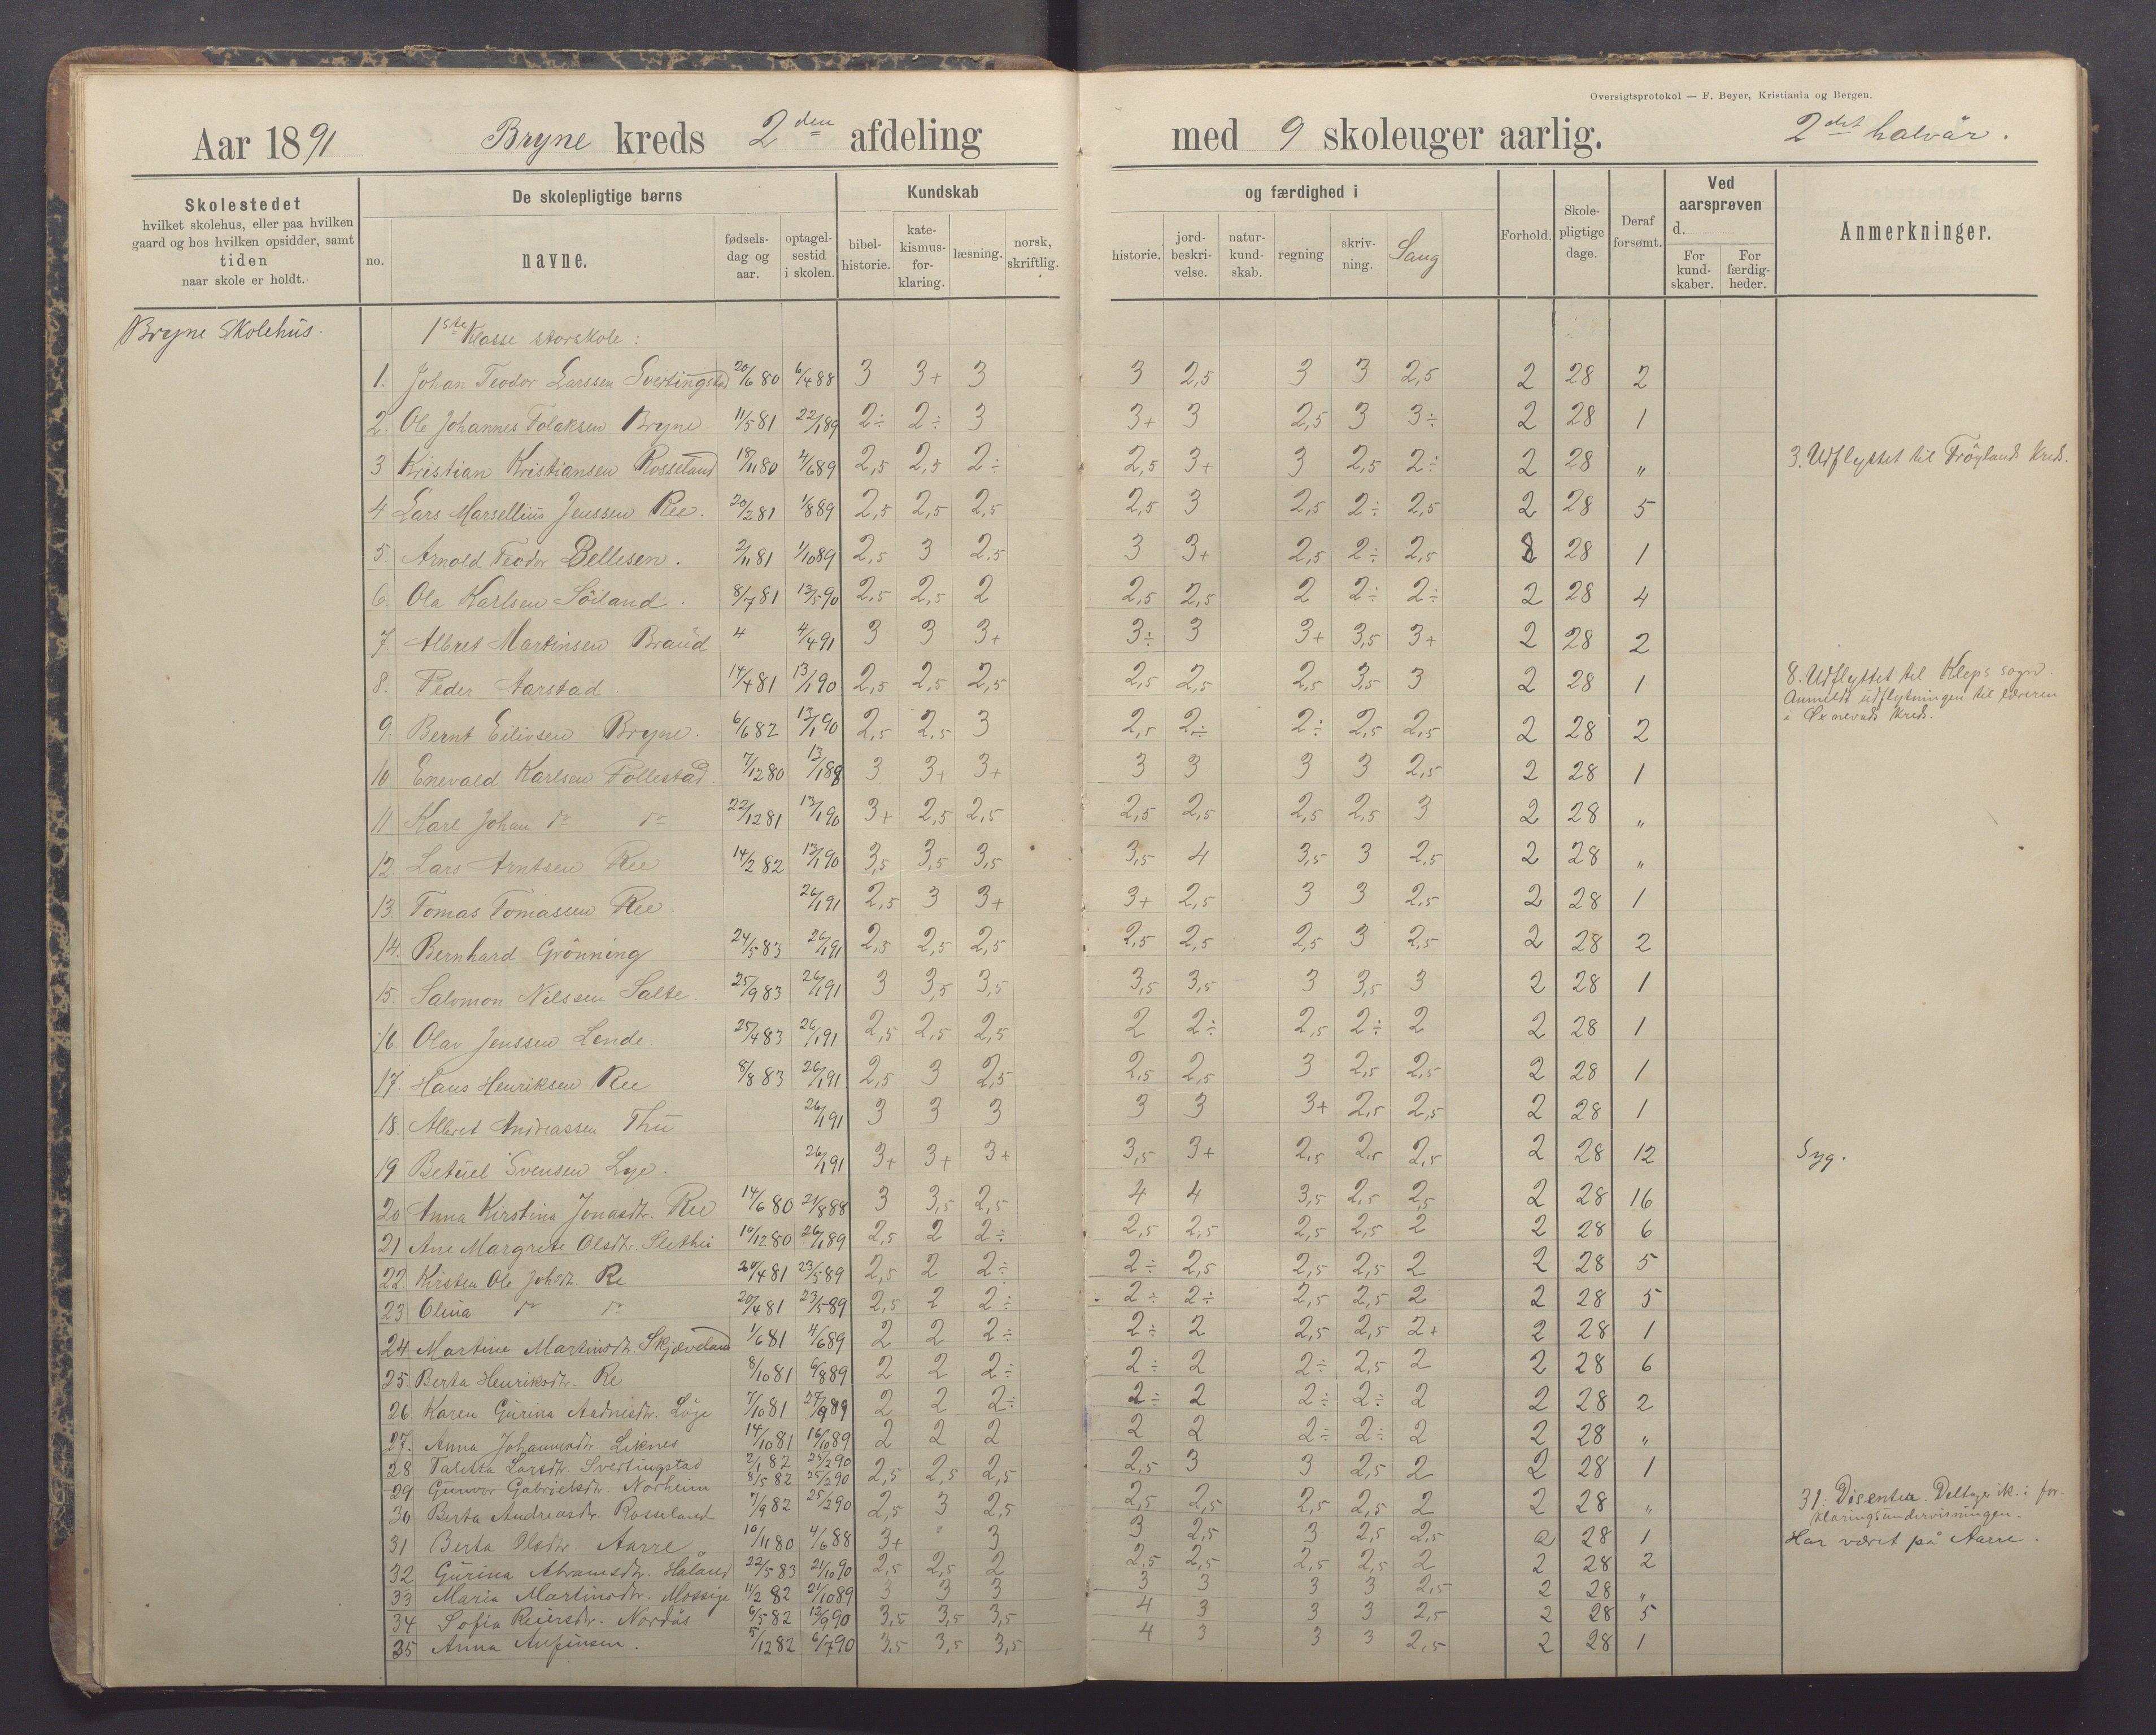 Oversigtsprotokol — F. Beyer, Kristiania og Bergen.
Aar 1891 Bryne kreds 2den afdeling med 9 skoleuger aarlig. 2det halvår.
Skolestedet
hvilket skolehus, eller paa hvilken
gaard og hos hvilken opsidder, samt
tiden
naar skole er holdt.
De skolepligtige børns
no. navne. fødselsdag og aar. optagelsestid i skolen.
Kundskab og færdighed i
bibelhistorie. katekismusforklaring. læsning. norsk, skriftlig. historie. jordbeskrivelse. naturkundskab. regning skrivning. Sang
Forhold. Skolepligtige dage. Deraf forsømt.
Ved aarsprøven d.
For kundskaber. For færdigheder.
Anmerkninger.
Bryne Skolehus.
1ste Klasse storskole:
1. Johan Teodor Larssen Svertingstad 20/6 80 6/4 88 3 3+ 3 3 2,5 3 3 2,5 2 28 2
2. Ole Johannes Folaksen Bryne. 11/5 81 22/1 89 2÷ 2÷ 3 3+ 3 2,5 3 3÷ 2 28 1
3 Kristian Kristiansen Rosseland 18/11 80 4/6 89 2,5 2,5 2÷ 2,5 3+ 3 2,5 2÷ 2 28 „ 3. Udflyttet til Frøylands Kreds.
4 Lars Marsellius Jenssen Ree. 20/2 81 1/8 89 2,5 2,5 2,5 2,5 3 2,5 2÷ 2,5 2 28 5
5. Arnold Teodor Bellesen. 2/11 81 1/10 89 2,5 3 2,5 3 3+ 2,5 2÷ 2,5 2 28 1
6. Ola Karlsen Söiland. 8/7 81 13/5 90 2,5 2,5 2 2,5 2,5 2 2÷ 2÷ 2 28 4
7. Albret Martinsen Braud 4 4/4 91 3 3 3+ 3÷ 3 3+ 3,5 3+ 2 28 2
8. Peder Aarstad. 14/4 81 13/1 90 2,5 2,5 2,5 2,5 2,5 2,5 3,5 3 2 28 1 8. Udflyttet til Kleps sogn.
Anmeldt udflytningen til læreren
i Øxnevads Kreds.
9. Bernt Eilivsen Bryne. 6/6 82 13/1 90 2,5 2,5 3 2,5 2÷ 2÷ 2,5 2,5 2 28 2
10 Enevald Karlsen Tollestad. 7/12 80 13/1 88 3 3+ 3+ 3 3 3 3 2,5 2 28 1
11 Karl Johan do do 22/12 81 13/1 90 3+ 2,5 2,5 2,5 2,5 2,5 2,5 3 2 28 „
12. Lars Arntsen Ree 14/2 82 13/1 90 3,5 3,5 3,5 3,5 4 3,5 3 2,5 2 28 „
13. Tomas Tomassen Ree. 26/1 91 2,5 3 3+ 3+ 2,5 3 3 2,5 2 28 1
14. Bernhard Grönning 24/5 83 26/1 91 2,5 2,5 2,5 2,5 2,5 2,5 3 2,5 2 28 2
15. Salomon Nilssen Salte. 25/9 83 26/1 91 3 3,5 3,5 3,5 3,5 3 3,5 3 2 28 1
16. Olav Jenssen Lende. 25/4 83 26/1 91 2,5 2,5 2,5 2 2÷ 2,5 2÷ 2 2 28 1
17. Hans Henriksen Ree 8/8 83 26/1 91 2,5 3 2,5 2,5 2,5 3 2,5 2,5 2 28 1
18. Albret Andreassen Thu 26/1 91 3 3 3 3 3 3+ 2,5 2,5 2 28 1
19 Betuel Svensen Lye. 26/1 91 3+ 3+ 3+ 3,5 3+ 2,5 2,5 2,5 2 28 12 Syg.
20 Anna Kirstina Jonasdtr. Ree 14/6 80 21/8 88 3 3,5 2,5 4 4 3,5 2,5 2,5 2 28 16
21 Ane Margrete Olsdtr. Slethei 10/12 80 26/1 89 2,5 2 2÷ 2,5 2,5 2,5 2,5 2 2 28 6
22. Kirsten Ole Johsdt. Re 20/4 81 23/5 89 2,5 2 2÷ 2÷ 2,5 2,5 2,5 2 2 28 5
23 Olina do do 20/4 81 23/5 89 2,5 2 2÷ 2÷ 2÷ 2,5 2,5 2 2 28 5
24 Martine Martinsdtr. Skjæveland 1/6 81 4/6 89 2 2 2÷ 2÷ 2 2,5 2,5 2+ 2 28 1
25. Berta Henriksdtr. Re 8/10 81 6/8 89 2 2 2÷ 2÷ 2 2÷ 2,5 2 2 28 6
26. Karen Gurina Aadnesdtr. Löge 7/10 81 27/9 89 2 2 2÷ 2÷ 2 2÷ 2÷ 2 2 28 2
27. Anna Johannesdtr. Liknes 14/10 81 16/10 89 2 2 2 2 2 2÷ 2÷ 2 2 28 „
28 Talitta Larsdtr. Svertingstad 2/1 82 25/2 90 2,5 2,5 2,5 2,5 3 3 2,5 2 2 28 1
29 Gunvor Gabrielsdtr. Norheim 8/5 82 25/2 90
30 Berta Andreasdtr. Rosseland 7/9 82 25/2 90 2,5 3 2,5 2,5 2,5 2,5 2,5 2 2 28 „ 31. Disenter. Deltager ik. i for-
klaringsundervisningen.
31 Berta Olsdtr. Aarre „ 10/11 80 4/6 88 3+ „ 3 3 2,5 3 2,5 2,5 2 28 1 Har været på Aarre.
32 Gurina Abramsdtr. Håland 22/5 83 21/10 90 2,5 2,5 2 2,5 2,5 2,5 2,5 2 2 28 2
33 Maria Martinsdtr. Mossige 11/2 82 21/10 89 3 3 3 3 3 3 3 2,5 2 28 „
34 Sofia Reiersdtr. Nordås 6/5 82 12/9 90 3,5 3,5 3,5 4 3 3 3 2,5 2 28 5
35 Anna Aspinsen. 5/12 82 6/7 90 3,5 3,5 3,5 4 3 3 3 2,5 2 28 1